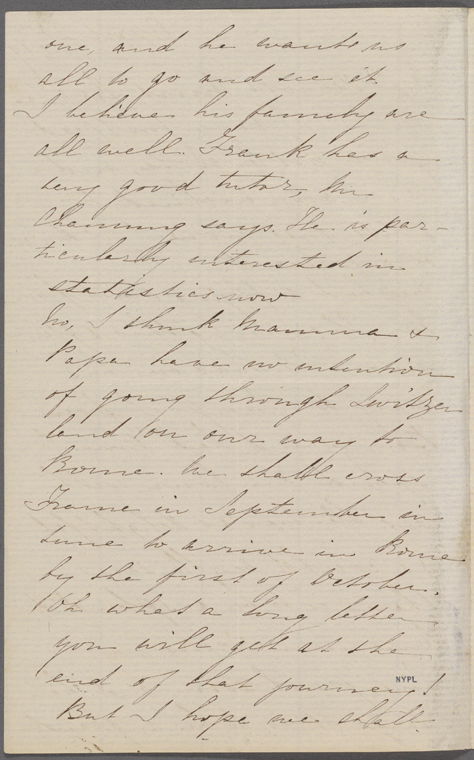 one, and he wants us
all to go and see it.
I believe his family are
all well. Frank has a
very good tutor, Mr
Channing says. He is par-
ticularly interested in
statistics now
No, I think Mamma &
Papa have no intention
of going through Switzer
land on our way to
Rome. We shall cross
France in September in
time to arrive in Rome
by the first of October.
Oh what a long letter
you will get at the
end of that journey!
NYPL
But I hope we shall